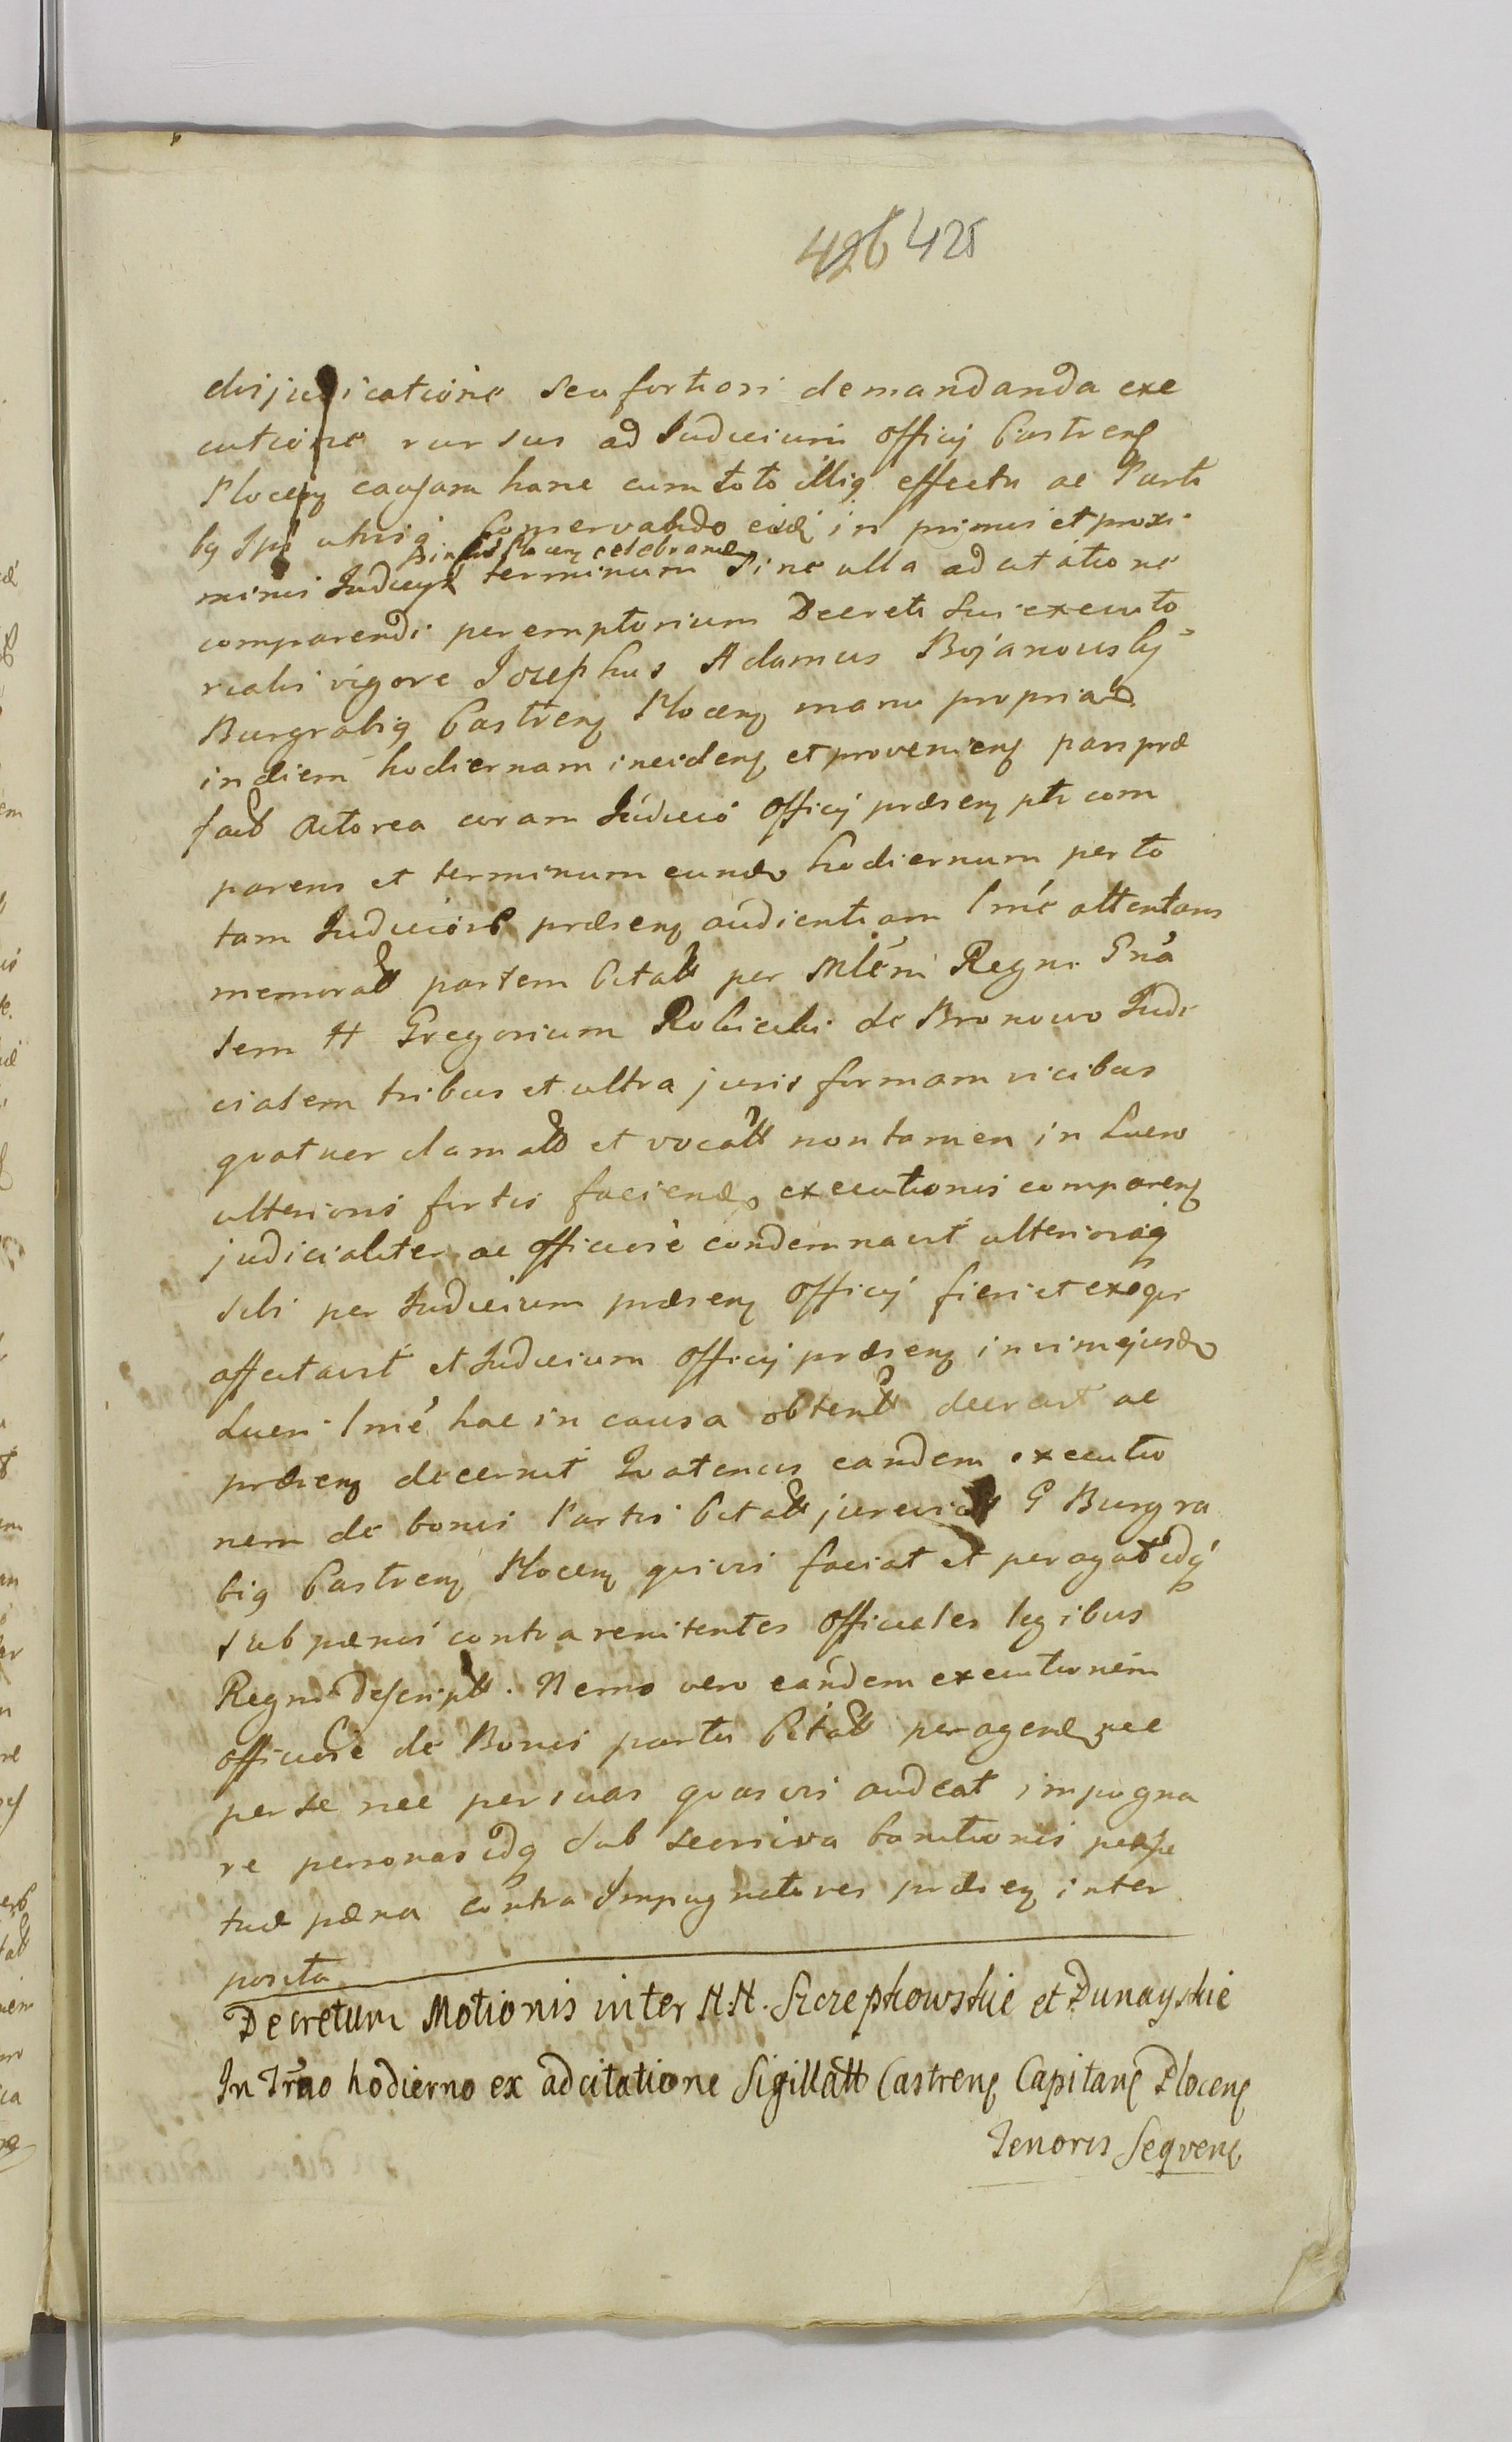 426 428
disjudicatione seu fortiori demandanda exe
cutione rursus ad Judicium Officij Castrens
Plocens causam hanc cum toto illiq effectu ac Parti
bq Ips utrisq Conservando eisd in primis et proxi
Plocens celebrand
minis Judicys terminum sine ulla adcitatione
comparendi peremptorium Decreti sui executo
rialis vigore Josephus Adamus Bojanowsky
Burgrabiq Castrens Plocens manu propria
in diem hodiernam incidens et proveniens pars præ
fatt Actorea coram Judicio Officij præsens ptr com
parens et terminum eund hodiernum per to
tam Judicior præsens audientiam lmè attentans
memoratt partem Citatt per Mlem Regni Gna
lem H Gregorium Robicki de Bronowo Judi
cialem tribus et ultra juris formam vicibus
quatuer clamatt et vocatt non tamen in Lucro
ulterioris fortis faciend executionis comparens
judicialiter ac officiose condemnavit ulteriorāq
sibi per Judicium præsens Officij fieri et exeqvi
affectavit et Judicium Officij præsens in vim ejusd
Lucri lmè hac in causa obtent decrevit ac
præsens decernit Qvatenus eandem executio
nem de bonis Partis Citatt jurevictt G Burgra
biq Castrens Plocens qvivis faciat et peragat idq
sub pænis contra renitentes Officiales legibus
Regni descriptt. Nemo vero eandem executionem
officiose de Bonis partis Citatt peragend nec
per se nec per suas qvasvis audeat impugna
re personas idq sub secusiva banitionis perpe
tuæ pæna contra Impugnatores præsens inter
posita
Decretum Motionis inter N.N. Szczepkowskie et Dunayskie
In Trno hodierno ex adcitatione Sigillatt Castrens Capitans Plocens
Tenoris Seqvens